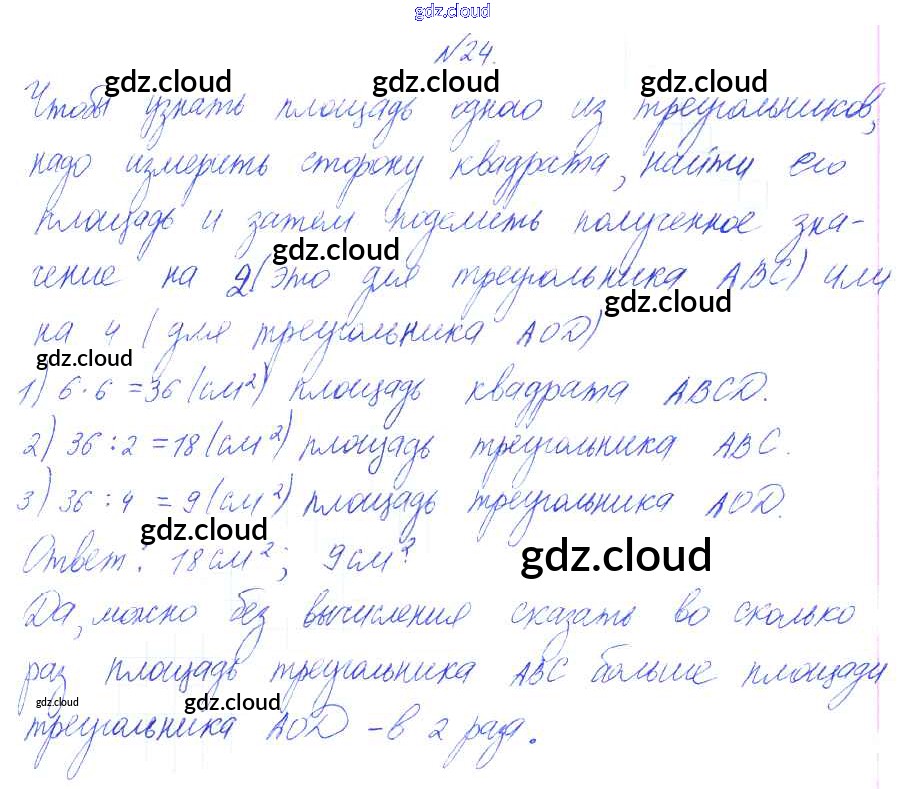 gdz.cloud
№24.
gdz.cloud gdz.cloud gdz.cloud
Чтобы узнать площадь одного из треугольников,
надо измерить сторону квадрата, найти его
площадь и затем поделить полученное зна-
gdz.cloud
чение на 2 (это для треугольника ABC) или
gdz.cloud
на 4 (для треугольника AOD)
gdz.cloud
1) 6·6=36 (см²) площадь квадрата ABCD.
2) 36:2=18 (см²) площадь треугольника ABC.
3) 36:4=9 (см²) площадь треугольника AOD.
gdz.cloud gdz.cloud
Ответ: 18см²; 9см²
Да, можно без вычисления сказать во сколько
раз площадь треугольника ABC больше площади
gdz.cloud gdz.cloud
треугольника AOD – в 2 раза.